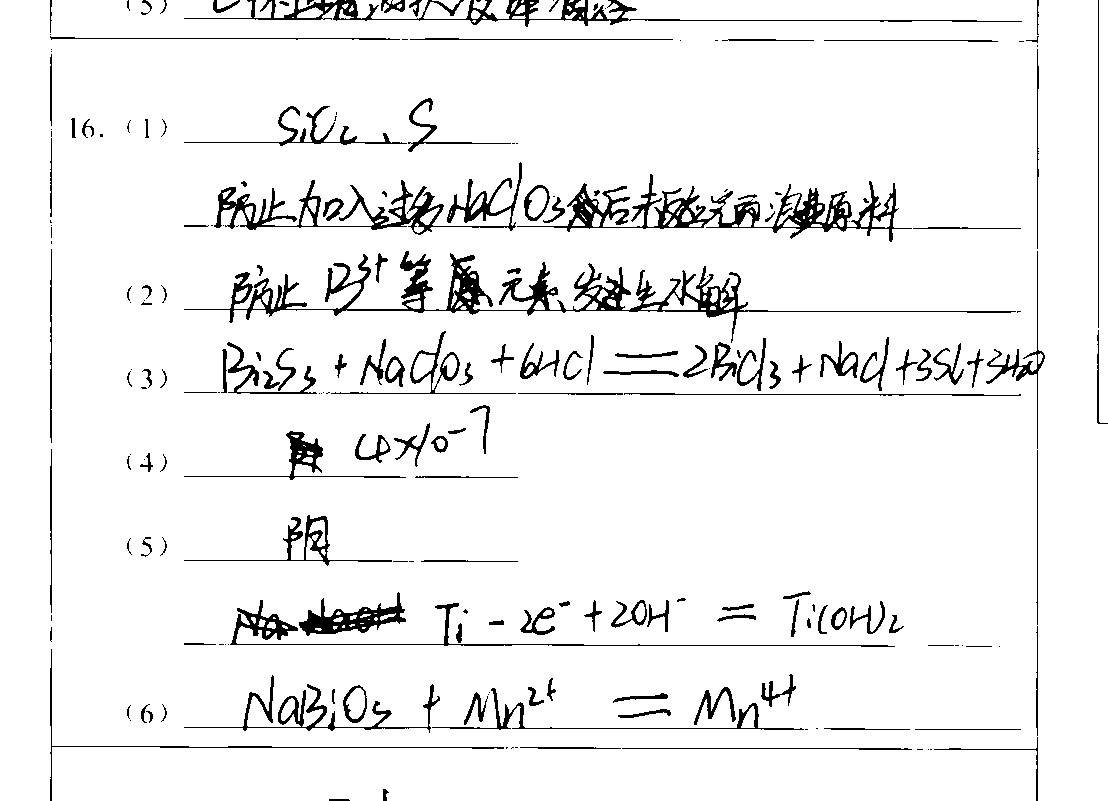 (5)
16. (1) SiO₂、S
防止加入过多NaClO₃后未反应完而浪费原料
(2) 防止B³⁺等元素发生水解
(3) Bi₂S₃ + NaClO₃ + 6HCl == 2BiCl₃ + NaCl + 3S↓ + 3H₂O
(4) 4×10⁻⁷
(5) 阴
Ti - 2e⁻ + 2OH⁻ = Ti(OH)₂
(6) NaBiO₃ + Mn²⁺ = Mn⁴⁺